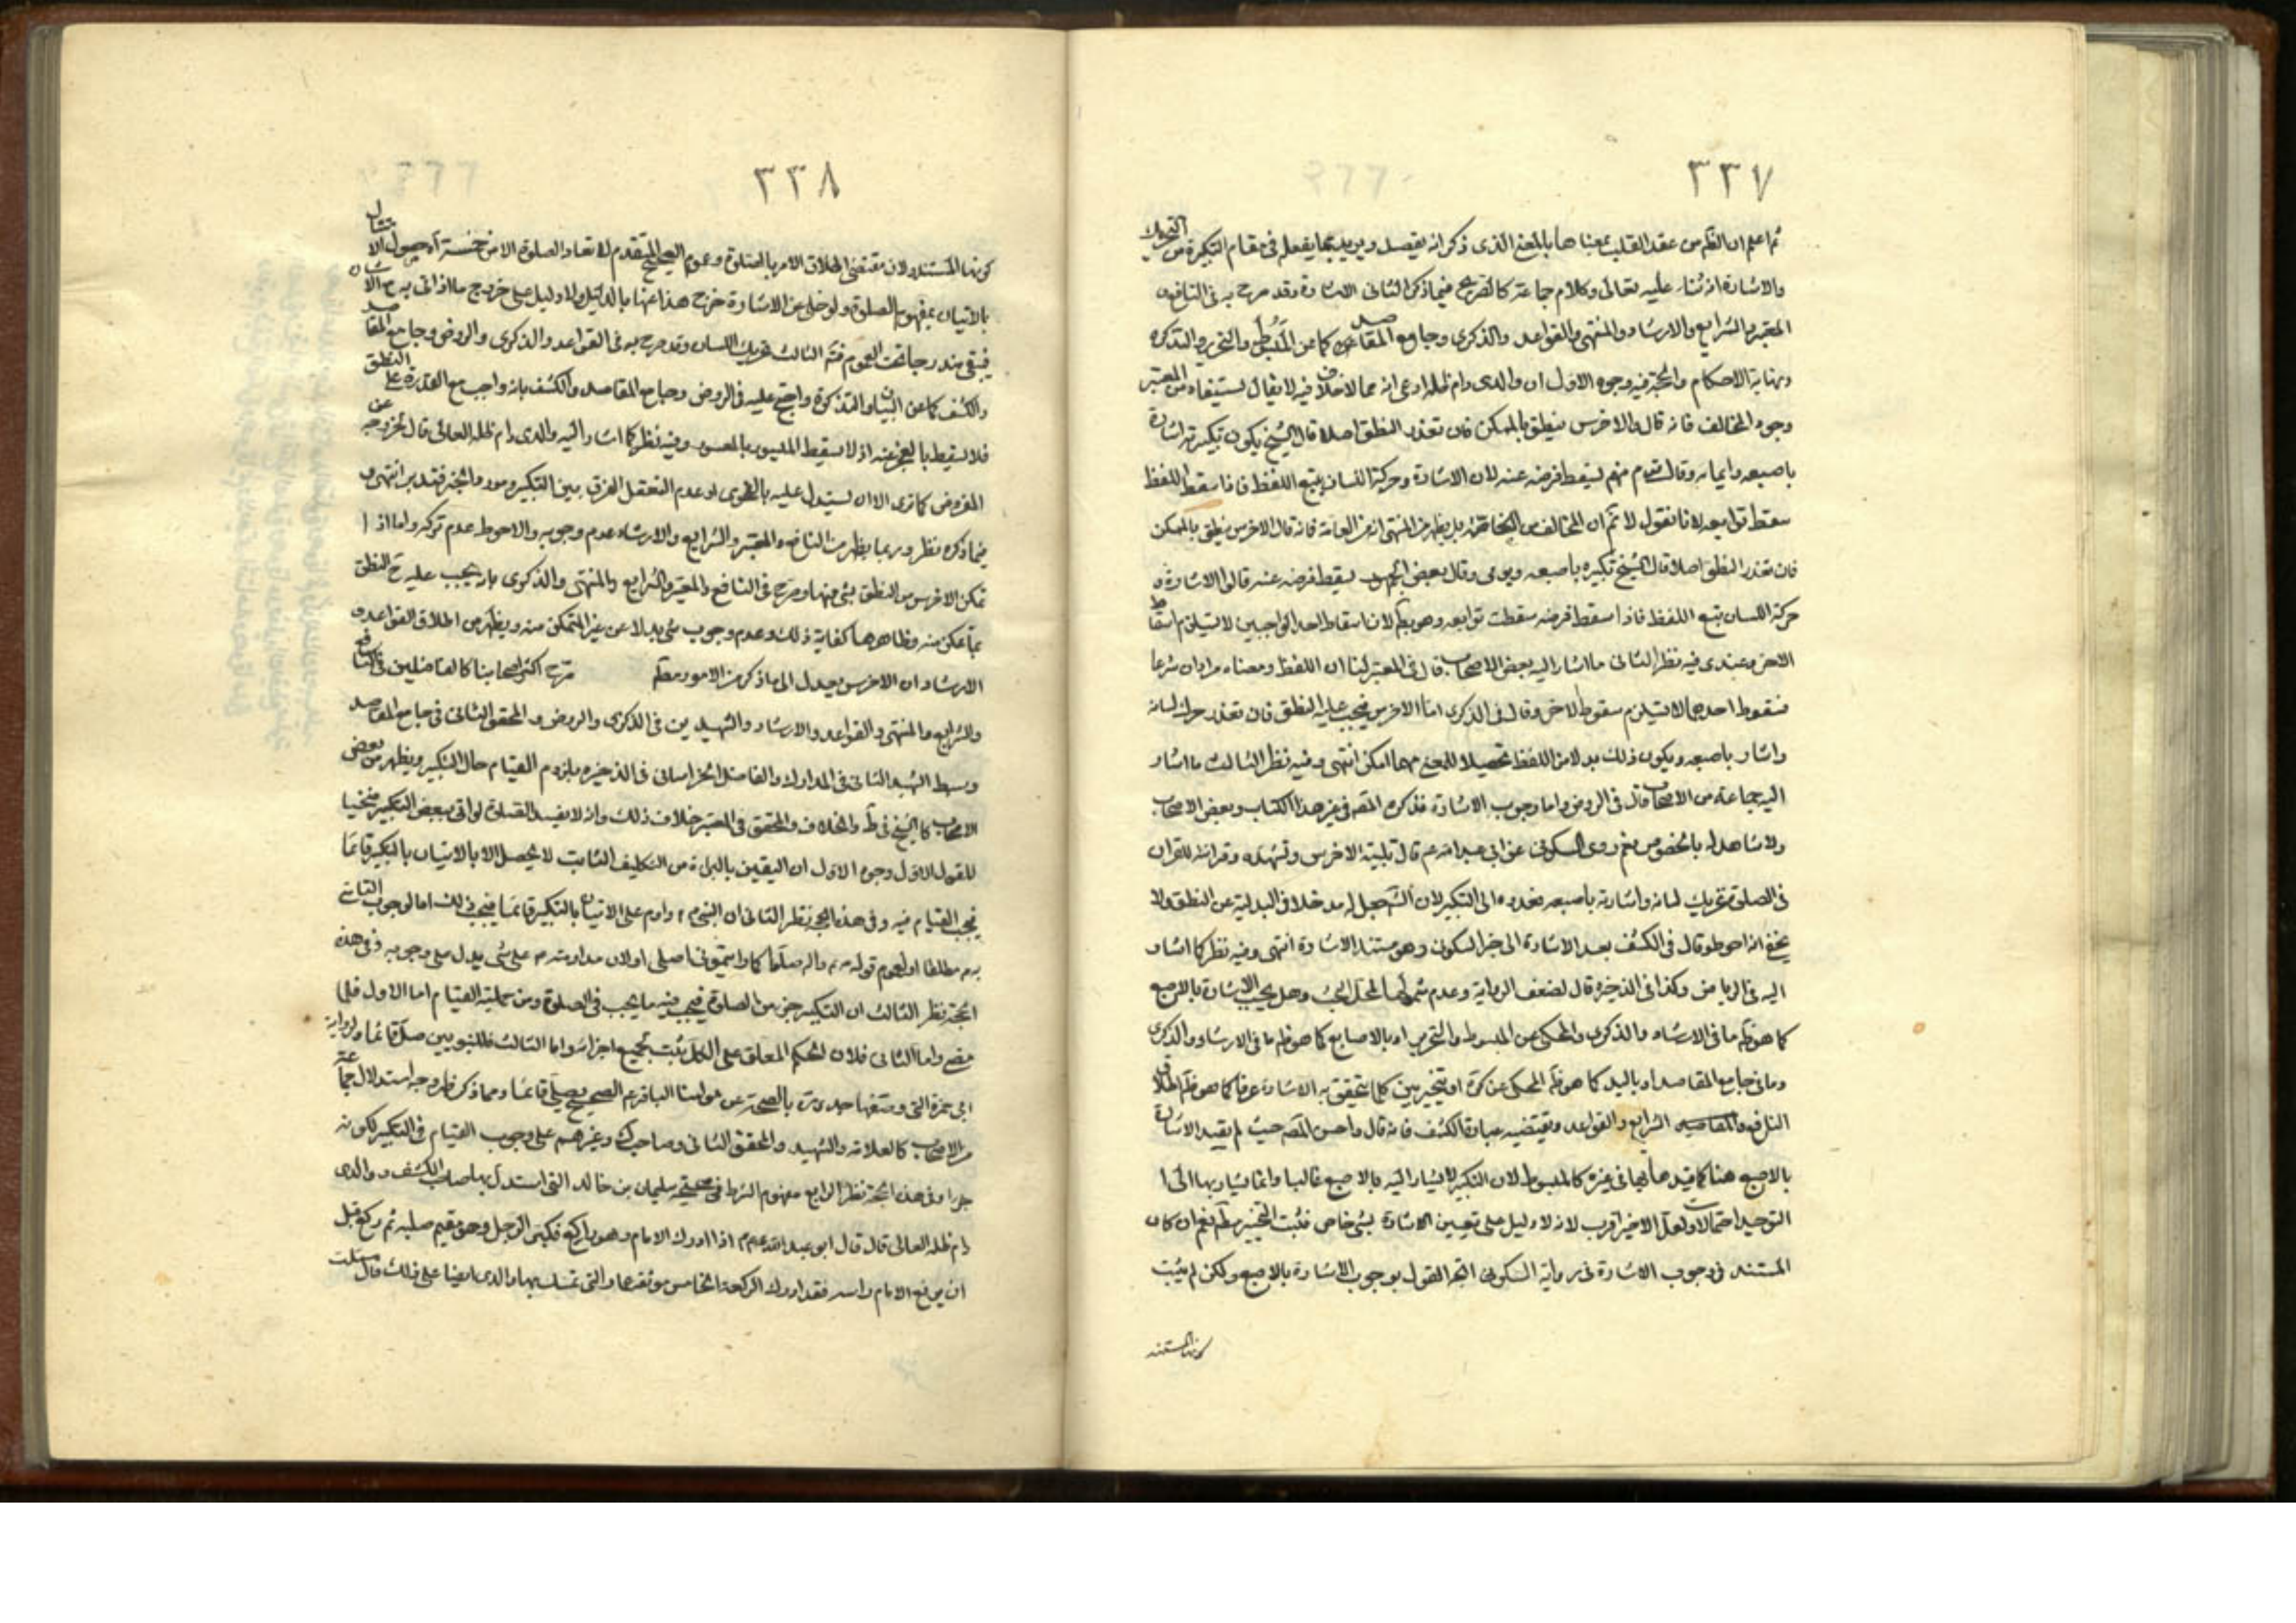 ٣٣٧
ثم اعلم ان الظم من عقد القلب بمعناها بالمعنى الذى ذكر انه يقصد ويريد بما يفعله فى مقام التكبيرة من التحريك
والاشارة انه ثناء عليه تعالى وكلام جماعة كالصريح فيما ذكر الثانى الاشارة وقد صرح به فى النافع و
المعتبر والشرايع والارشاد والمنتهى والقواعد والذكرى وجامع المقاصد كما عن المبسوط والتحرير والتذكرة
ونهاية الاحكام والحجة فيه وجوه الاول ان والدى دام ظله ادعى انه مما لا خلاف فيه لا يقال يستفاد من المعتبر
وجود المخالف فانه قال والاخرس ينطق بالممكن فان تعذر النطق اصلا قال الشيخ يكون تكبيرته اشارة
باصبعه وايمائه وقال قوم منهم يسقط فرضه عنه لان الاشارة وحركة اللسان يتبع اللفظ فاذا سقط اللفظ
سقط توابعه لانا نقول لا نم ان المخالف من الخاصة بل يظهر من المنتهى انه من العامة فانه قال الاخرس ينطق بالممكن
فان تعذر النطق اصلا قال الشيخ تكبيره باصبعه ويومى وقال بعض الجمهور يسقط فرضه عنه قالوا الاشارة و
حركة اللسان يتبع اللفظ فاذا سقط فرضه سقطت توابعه وهو بط لان اسقاط احد الواجبين لا يستلزم اسقاط
الاخر وعندى فيه نظر الثانى ما اشار اليه بعض الاصحاب قال فى المعتبر لنا ان اللفظ ومعناه مرادان شرعا
فسقوط احدهما لا يستلزم سقوط الاخر وقال فى الذكرى اما الاخرس فيجب عليه النطق فان تعذر حرك لسانه
واشار باصبعه ويكون ذلك بدلا من اللفظ تحصيلا للمعنى مهما امكن انتهى وفيه نظر الثالث ما اشار
اليه جماعة من الاصحاب قال فى الروض واما وجوب الاشارة فذكره المصه فى غير هذا الكتاب وبعض الاصحاب
ولا شاهد له بالخصوص نعم روى السكونى عن ابى عبد الله عم قال تلبية الاخرس وتشهده وقرائته للقران
فى الصلوة تحريك لسانه واشارته باصبعه فعدوه الى التكبير لان الشـ جعل له مدخلا فى البدلية عن النطق ولا
يخفى انه احوط وقال فى الكشف بعد الاشارة الى خبر السكونى وهو مستند الاشارة انتهى وفيه نظر كما اشار
اليه فى الرياض وكذا فى الذخيرة قال لضعف الرواية وعدم شمولها لمحل البحث وهل يجب الاشارة بالاصبع
كما هو ظم ما فى الارشاد والذكرى والمحكى عن المبسوط والتحرير او بالاصابع كما هو ظم ما فى الارشاد والذكرى
وما فى جامع المقاصد او باليد كما هو ظم المحكى عن كرة او يتخير بين كلما يتحقق به الاشارة عرفا كما هو ظم اطلاق
النافع والشرايع والقواعد ويقتضيه عبارة الكشف فانه قال واحسن المصه حيث لم يقيد الاشارة
بالاصبع هنا كما قيدها بها فى غيره كالمبسوط لان التكبير لا يشار اليه بالاصبع غالبا وانما يشار بها الى ا
التوحيد احتمالات ولعل الاخير اقرب لانه لا دليل على تعيين الاشارة بشئ خاص فثبت التخيير مطم نعم ان كان
المستند فى وجوب الاشارة فى رواية السكونى اتجه القول بوجوب الاشارة بالاصبع ولكن لم يثبت
كونها المستند
٣٣٨
كونها المستند ولان مقتضى اطلاق الامر بالصلوة وعموم الصحيح المتقدم لا تعاد الصلوة الا من خمسة آه حصول الامتثال
بالاتيان بمفهوم الصلوة ولو خلى عن الاشارة خرج هذا عنها بالدليل ولا دليل على خروج ما اذا اتى به ح
فيبقى مندرجا تحت العموم فتم الثالث تحريك اللسان وقد صرح به فى القواعد والذكرى والروض وجامع المقاصد
والكشف كما عن البيان والتذكرة واحتج عليه فى الروض وجامع المقاصد والكشف بانه واجب مع القدرة على النطق
فلا يسقط بالعجز عنه اذ لا يسقط الميسور بالمعسور وفيه نظر كما اشار اليه والدى دام ظله العالى قال لخروجه عن
المفروض كما ترى الا ان يستدل عليه بالفحوى او عدم التعقل الفرق بين التكبير ومورد الخبر فتدبر انتهى و
فيما ذكره نظر وربما يظهر من النافع والمعتبر والشرايع والارشاد عدم وجوبه والاحوط عدم تركه واما اذا
تمكن الاخرس من النطق بشئ منها وصرح فى النافع والمعتبر والشرايع والمنتهى والذكرى بانه يجب عليه ح النطق
بما يمكن منه وظاهرها كفاية ذلك وعدم وجوب شئ بدلا عن غير المتمكن منه ويظهر من اطلاق القواعد و
الارشاد ان الاخرس يعدل الى ما ذكر من الامور مطم صرح اكثر اصحابنا كالفاضلين فى النافع
والشرايع والمنتهى والقواعد والارشاد والشهيدين فى الذكرى والروض والمحقق الثانى فى جامع المقاصد
وسبط الشهيد الثانى فى المدارك والفاضل الخراسانى فى الذخيرة بلزوم القيام حال التكبير ويظهر من بعض
الاصحاب كالشيخ فى ط والخلاف والمحقق فى المعتبر خلاف ذلك وانه لا يفسد الصلوة لو اتى ببعض التكبير منحنيا
للقول الاول وجوه الاول ان اليقين بالبراءة من التكليف الثابت لا يحصل الا بالاتيان بالتكبير قائما
فيجب القيام فيه وفى هذه الحجة نظر الثانى ان النبى ص داوم على الاتيان بالتكبير قائما فيجب ذلك اما لوجوب التاسى
به ص مطلقا او لعموم قوله ص واله صلوا كما رايتمونى اصلى او لان مداومته ص على شئ يدل على وجوبه وفى هذه
الحجة نظر الثالث ان التكبير جزء من الصلوة فيجب فيه ما يجب فى الصلوة ومن جملته القيام اما الاول فلما
مضى واما الثانى فلان الحكم المعلق على الكل يثبت بجميع اجزائه واما الثالث فللنبويين صل قائما ولرواية
ابى حمزة التى وصفها جدى ره بالصحة عن مولينا الباقر عم الصحيح يصلى قائما ومما ذكر ظهر وجه استدلال جماعة
من الاصحاب كالعلامة والشهيد والمحقق الثانى وصاحب ك وغيرهم على وجوب القيام فى التكبير لكونه
جزء وفى هذه الحجة نظر الرابع مفهوم الشرط فى صحيحة سليمان بن خالد التى استدل بها صاحب الكشف ووالدى
دام ظله العالى قال قال ابو عبد الله عم اذا ادرك الامام وهو راكع فكبر الرجل وهو مقيم صلبه ثم ركع قبل
ان يرفع الامام راسه فقد ادرك الركعة الخامس موثقة عمار التى تمسك بها والدى ايضا على ذلك قال سئلت